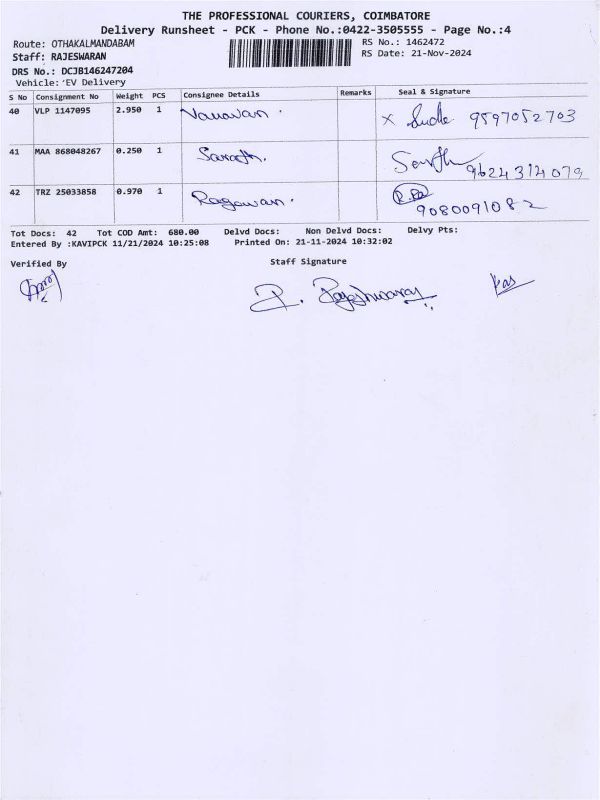 THE PROFESSIONAL COURIERS, COIMBATORE
Delivery Runsheet - PCK - Phone No.:0422-3505555 - Page No.:4
Route: OTHAKALMANDABAM
RS No.: 1462472
Staff: RAJESWARAN
RS Date: 21-Nov-2024
DRS No.: DCJB146247204
Vehicle: EV Delivery
S No Consignment No Weight PCS Consignee Details Remarks Seal & Signature
40 VLP 1147095 2.950 1 9597052703
41 MAA 868048267 0.250 1 Sarath. 9624314079
42 TRZ 25033858 0.970 1 Ragavan. 9080091082
Tot Docs: 42 Tot COD Amt: 680.00 Delvd Docs: Non Delvd Docs: Delvy Pts:
Entered By :KAVIPCK 11/21/2024 10:25:08 Printed On: 21-11-2024 10:32:02
Verified By
Staff Signature
Rajeshwaran